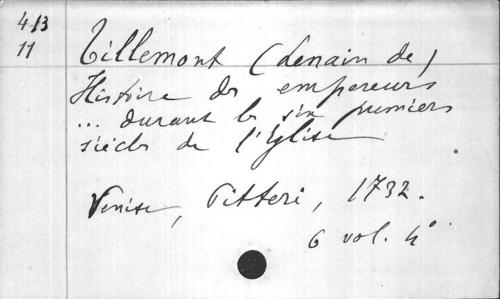 413
11
Tillemont (Lenain de)
Histoire des empereurs
... durant les six premiers
siècles de l'Eglise
Venise, Pitteri, 1732.
6 vol. 4°